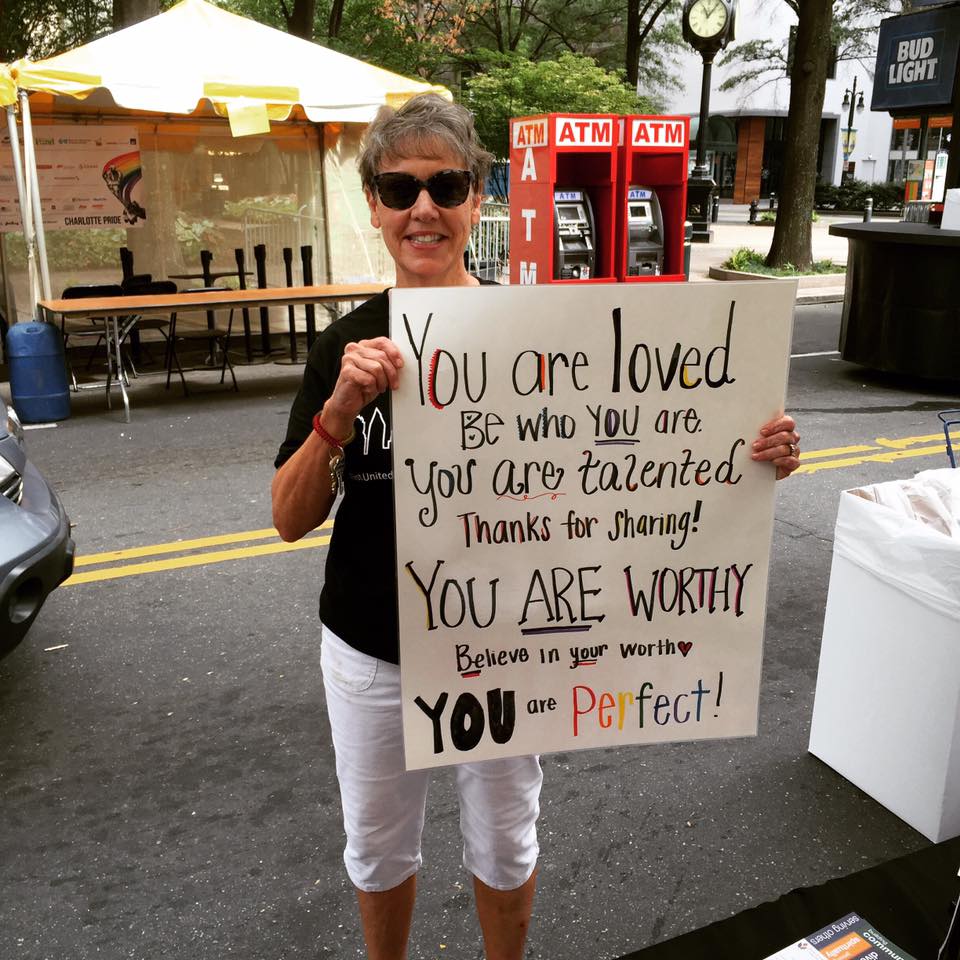 BUD
LIGHT
ATM
ATM
ATM
A
T
M
CHARLOTTE PRIDE
United
You are loved
Be who YOU are.
you are talented
Thanks for sharing!
YOU ARE WORTHY
Believe in your worth
YOU are Perfect!
serving others
spirituality
building